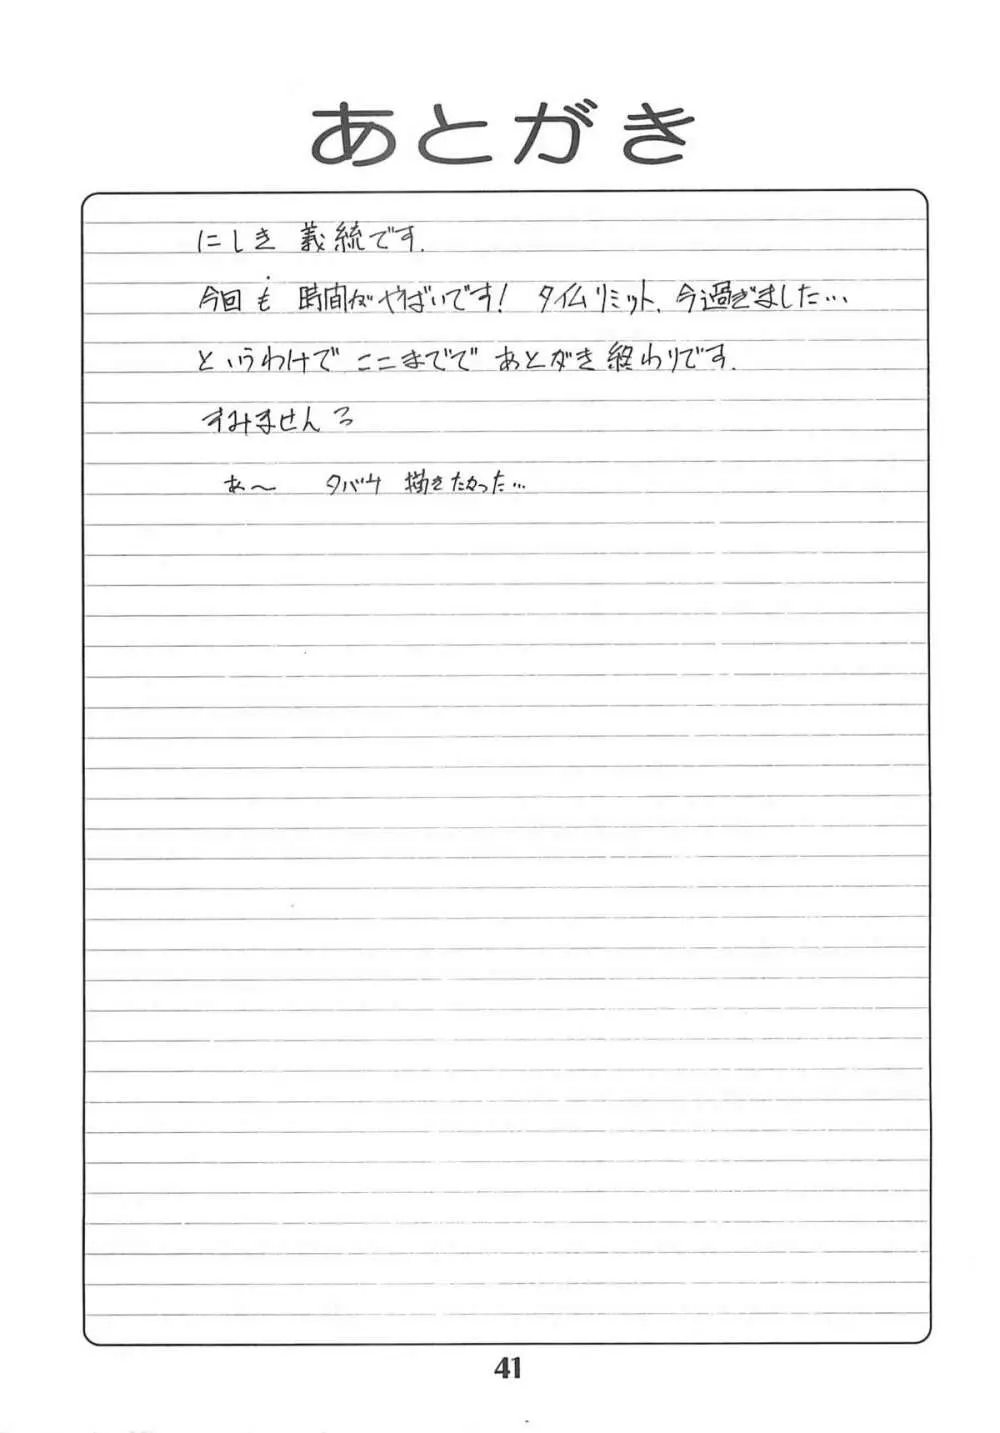 あとがき
にしき 義統です.
今回も 時間がやばいです! タイムリミット、今過ぎました…
というわけで ここまでで あとがき 終わりです.
すみません
あ〜 タバサ 描きたかった…
41